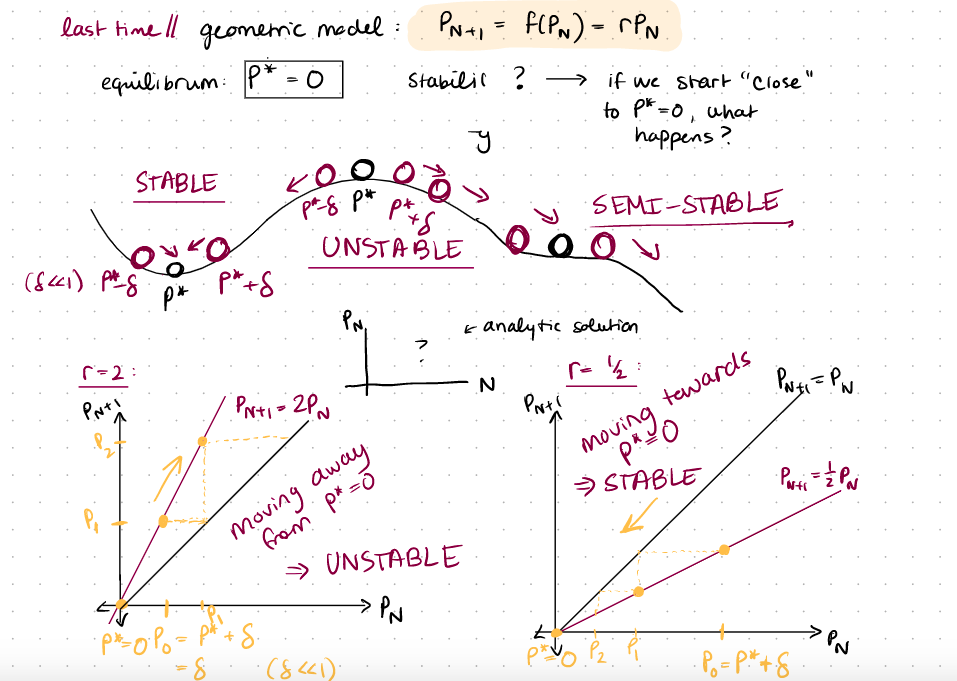 last time // geometric model : P_{N+1} = f(P_N) = rP_N
equilibrum: P* = 0
Stabilit ? → if we start "close"
to P*=0, what
happens?
y
STABLE
P*-δ P* P*+δ
SEMI-STABLE
UNSTABLE
(δ<<1) P*-δ P* P*+δ
P_N ? ← analytic solution
N
r=2 :
P_{N+1}
P_{N+1} = 2P_N
P_2
P_1
moving away
from P*=0
⇒ UNSTABLE
P_N
P*=0 P_0 = P*+δ P_1
= δ (δ<<1)
r= 1/2 :
P_{N+1}
moving towards
P*=0
⇒ STABLE
P_{N+1} = P_N
P_{N+1} = 1/2 P_N
P_N
P*=0 P_2 P_1 P_0 = P*+δ